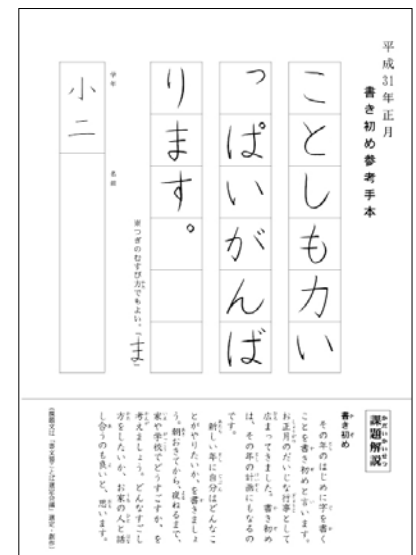 平成31年正月
書き初め参考手本
ことしも力い
っぱいがんば
ります。
※つぎのむすび方でもよい。「ま」
学年
小二
名前
課題解説
かだいかいせつ
書き初め
その年のはじめに字を書く
ことを書き初めと言います。
お正月のだいじな行事として
広まってきました。書き初め
は、その年の計画にもなるの
です。
新しい年に自分はどんなこ
とがやりたいか、を書きましょ
う。朝おきてから、夜ねるまで、
家や学校でどうすごすか、を
考えましょう。どんなすごし
方をしたいか、お家の人と話
し合うのも良いと、思います。